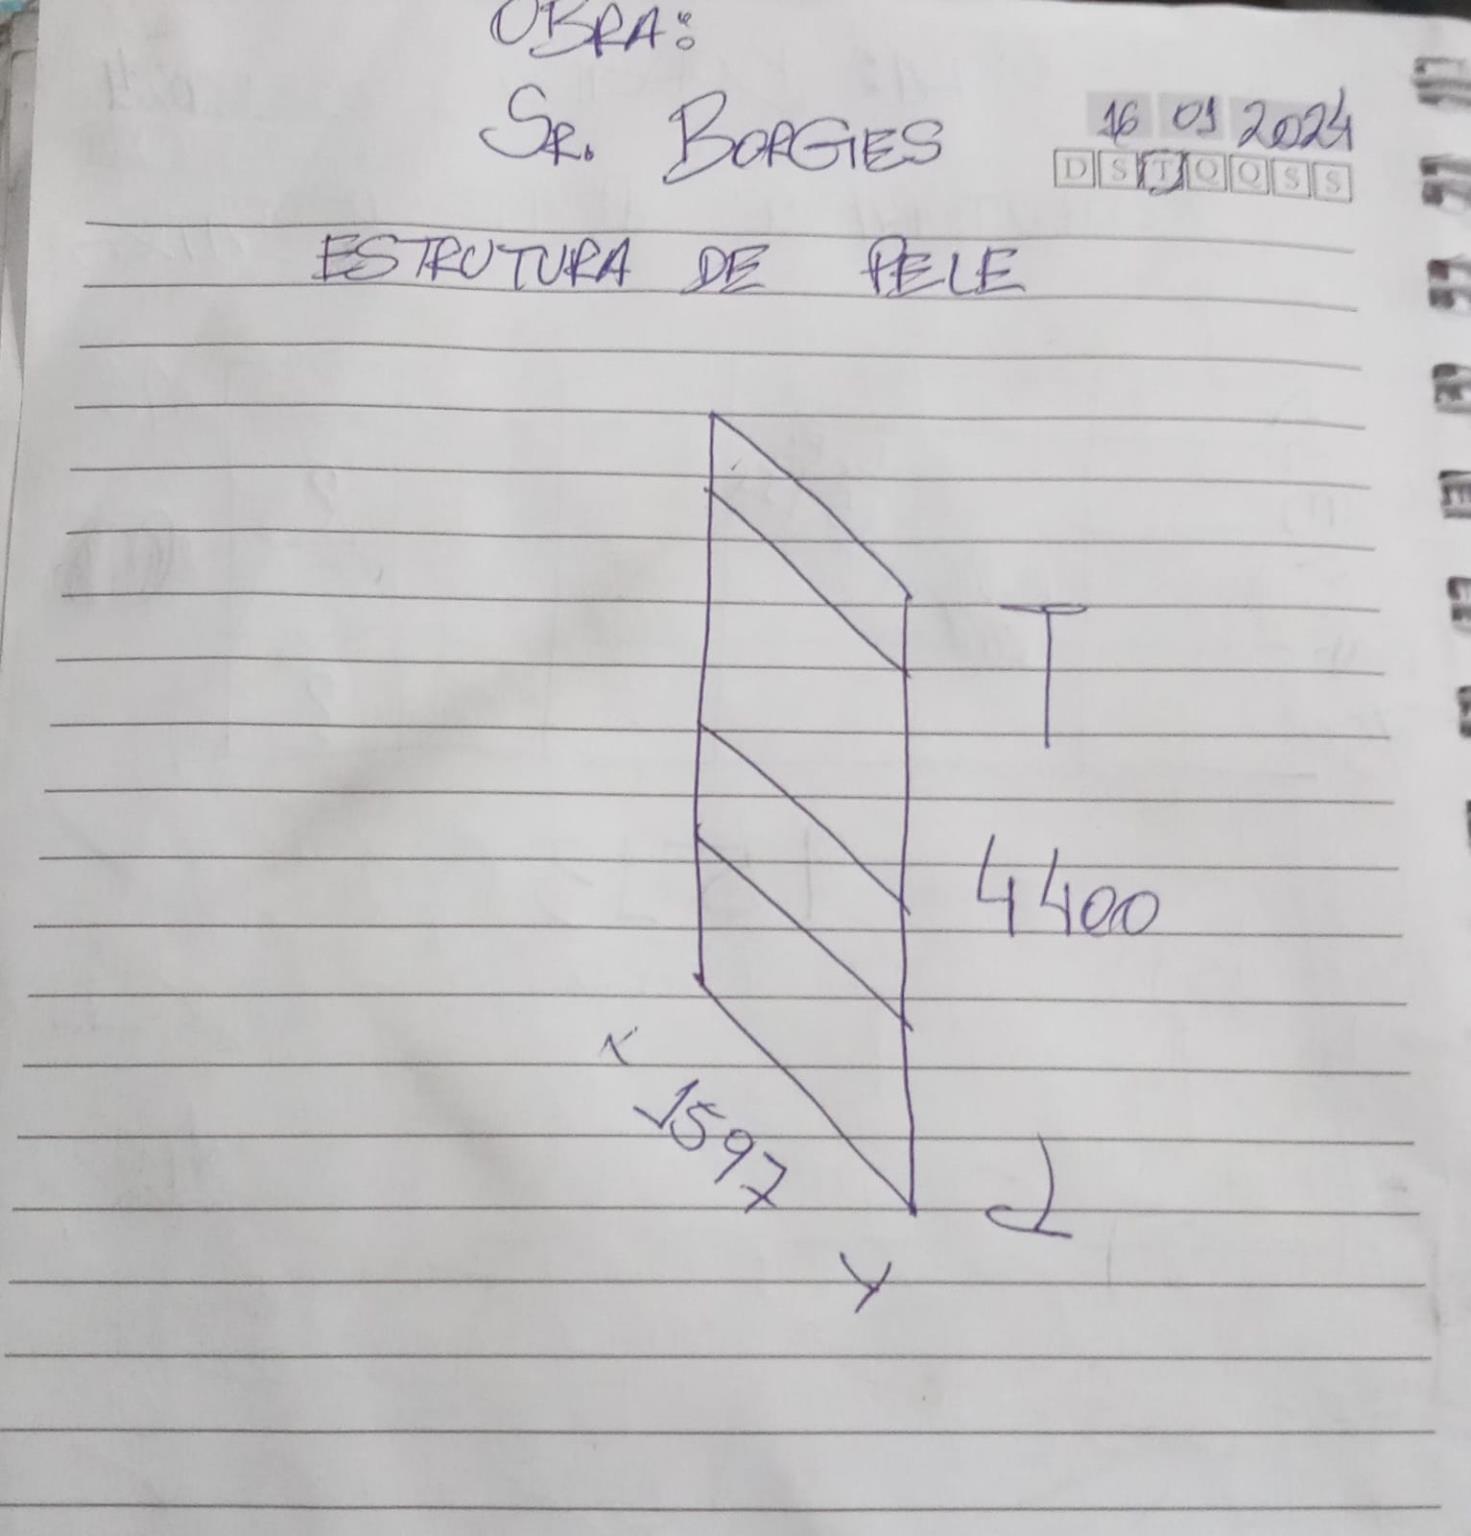 OBRA:
SR. BORGIES
16 01 2024
D S T Q Q S S
ESTRUTURA DE PELE
4400
1597